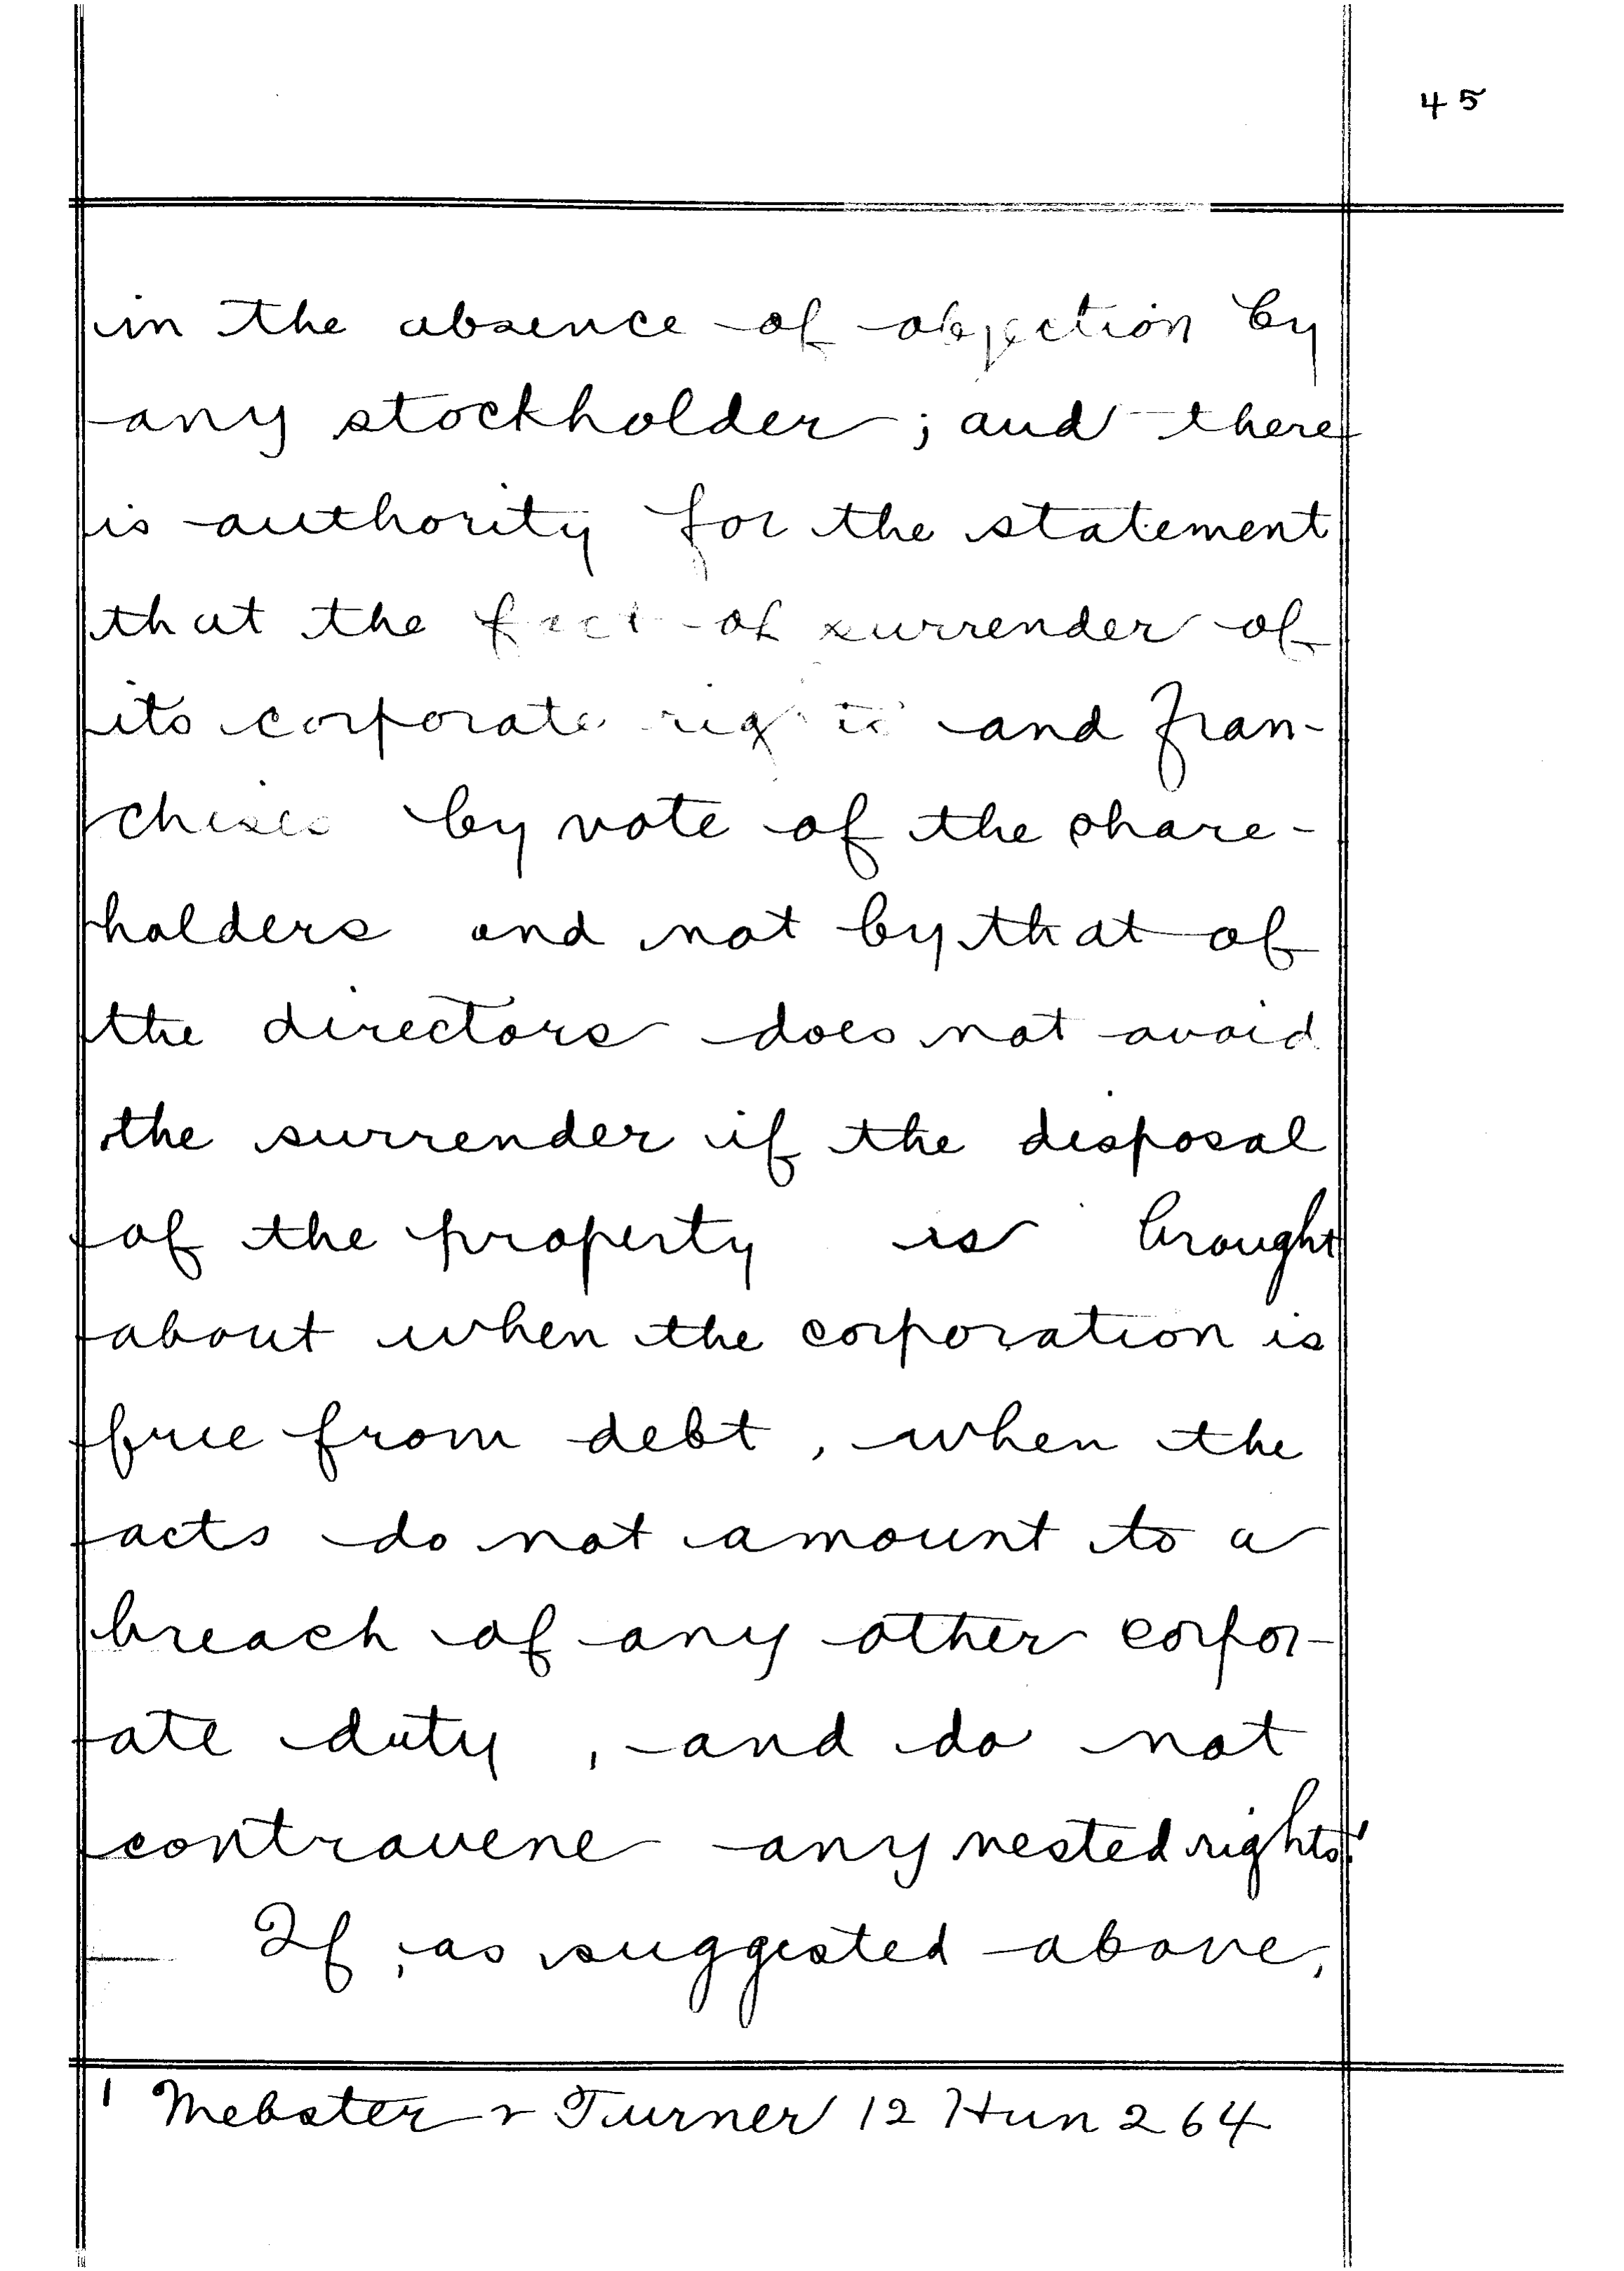 45
in the absence of objection by
any stockholder; and there
is authority for the statement
that the fact of surrender of
its corporate rights and fran-
chises by vote of the share-
holders and not by that of
the directors does not avoid
the surrender if the disposal
of the property is brought
about when the corporation is
free from debt, when the
acts do not amount to a
breach of any other corpor-
ate duty, and do not
contravene any vested rights.¹
— If, as suggested above,
¹ Webster v Turner 12 Hun 264